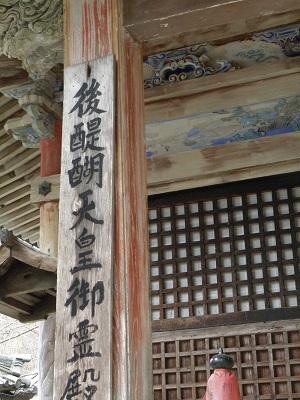 後醍醐天皇御霊殿